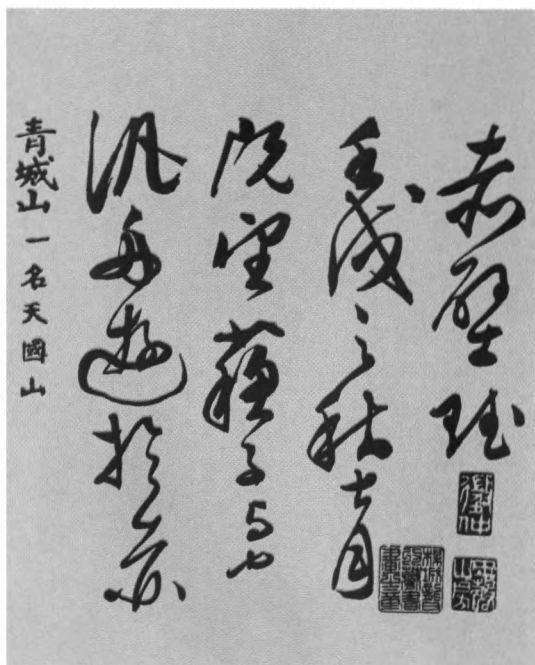 赤壁賦
徵仲
壬戌之秋七月
既望蘇子与客
汎舟遊於赤
青城山一名天國山